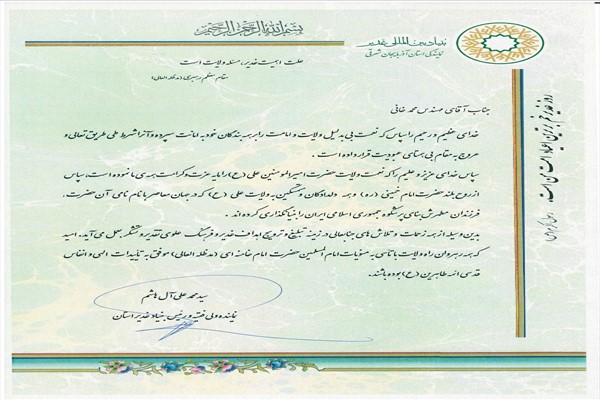 بسم الله الرحمن الرحیم
بنیاد بین المللی غدیر
نمایندگی استان آذربایجان شرقی
علت اهمیت غدیر، مسئله ولایت است
مقام معظم رهبری (مدظله العالی)
جناب آقای مهندس محمد خانی
خدای عظیم و رحیم را سپاس که نعمت بی بدیل ولایت و امامت را بر همه بندگان خود به امانت سپرده و آنرا شرط طی طریق تعالی و
عروج به مقام بی همتای عبودیت قرار داده است.
سپاس خدای عزیز و علیم را که نعمت ولایت حضرت امیرالمومنین علی (ع) را مایه عزت و کرامت همه ی ما نموده است، سپاس
از روح بلند حضرت امام خمینی (ره) و همه دلدادگان و متمسکین به ولایت علی (ع) که در جهان معاصر با نام نامی آن حضرت،
فرزندان مطهرش بنای پرشکوه جمهوری اسلامی ایران را بنیانگذاری کرده اند.
بدین وسیله از همه زحمات و تلاش های جنابعالی در زمینه تبلیغ و ترویج اهداف غدیر و فرهنگ علوی تقدیر و تشکر بعمل می آید. امید
که همه رهروان راه ولایت با تاسی به منویات امام المسلمین حضرت امام خامنه ای (مدظله العالی) موفق به تاییدات الهی و انفاس
قدسی ائمه طاهرین (ع) بوده باشند.
سید محمد علی آل هاشم
نماینده ولی فقیه و رئیس بنیاد غدیر استان
روز غدیر خم برترین اعیاد امت من است.
رسول گرامی (ص)